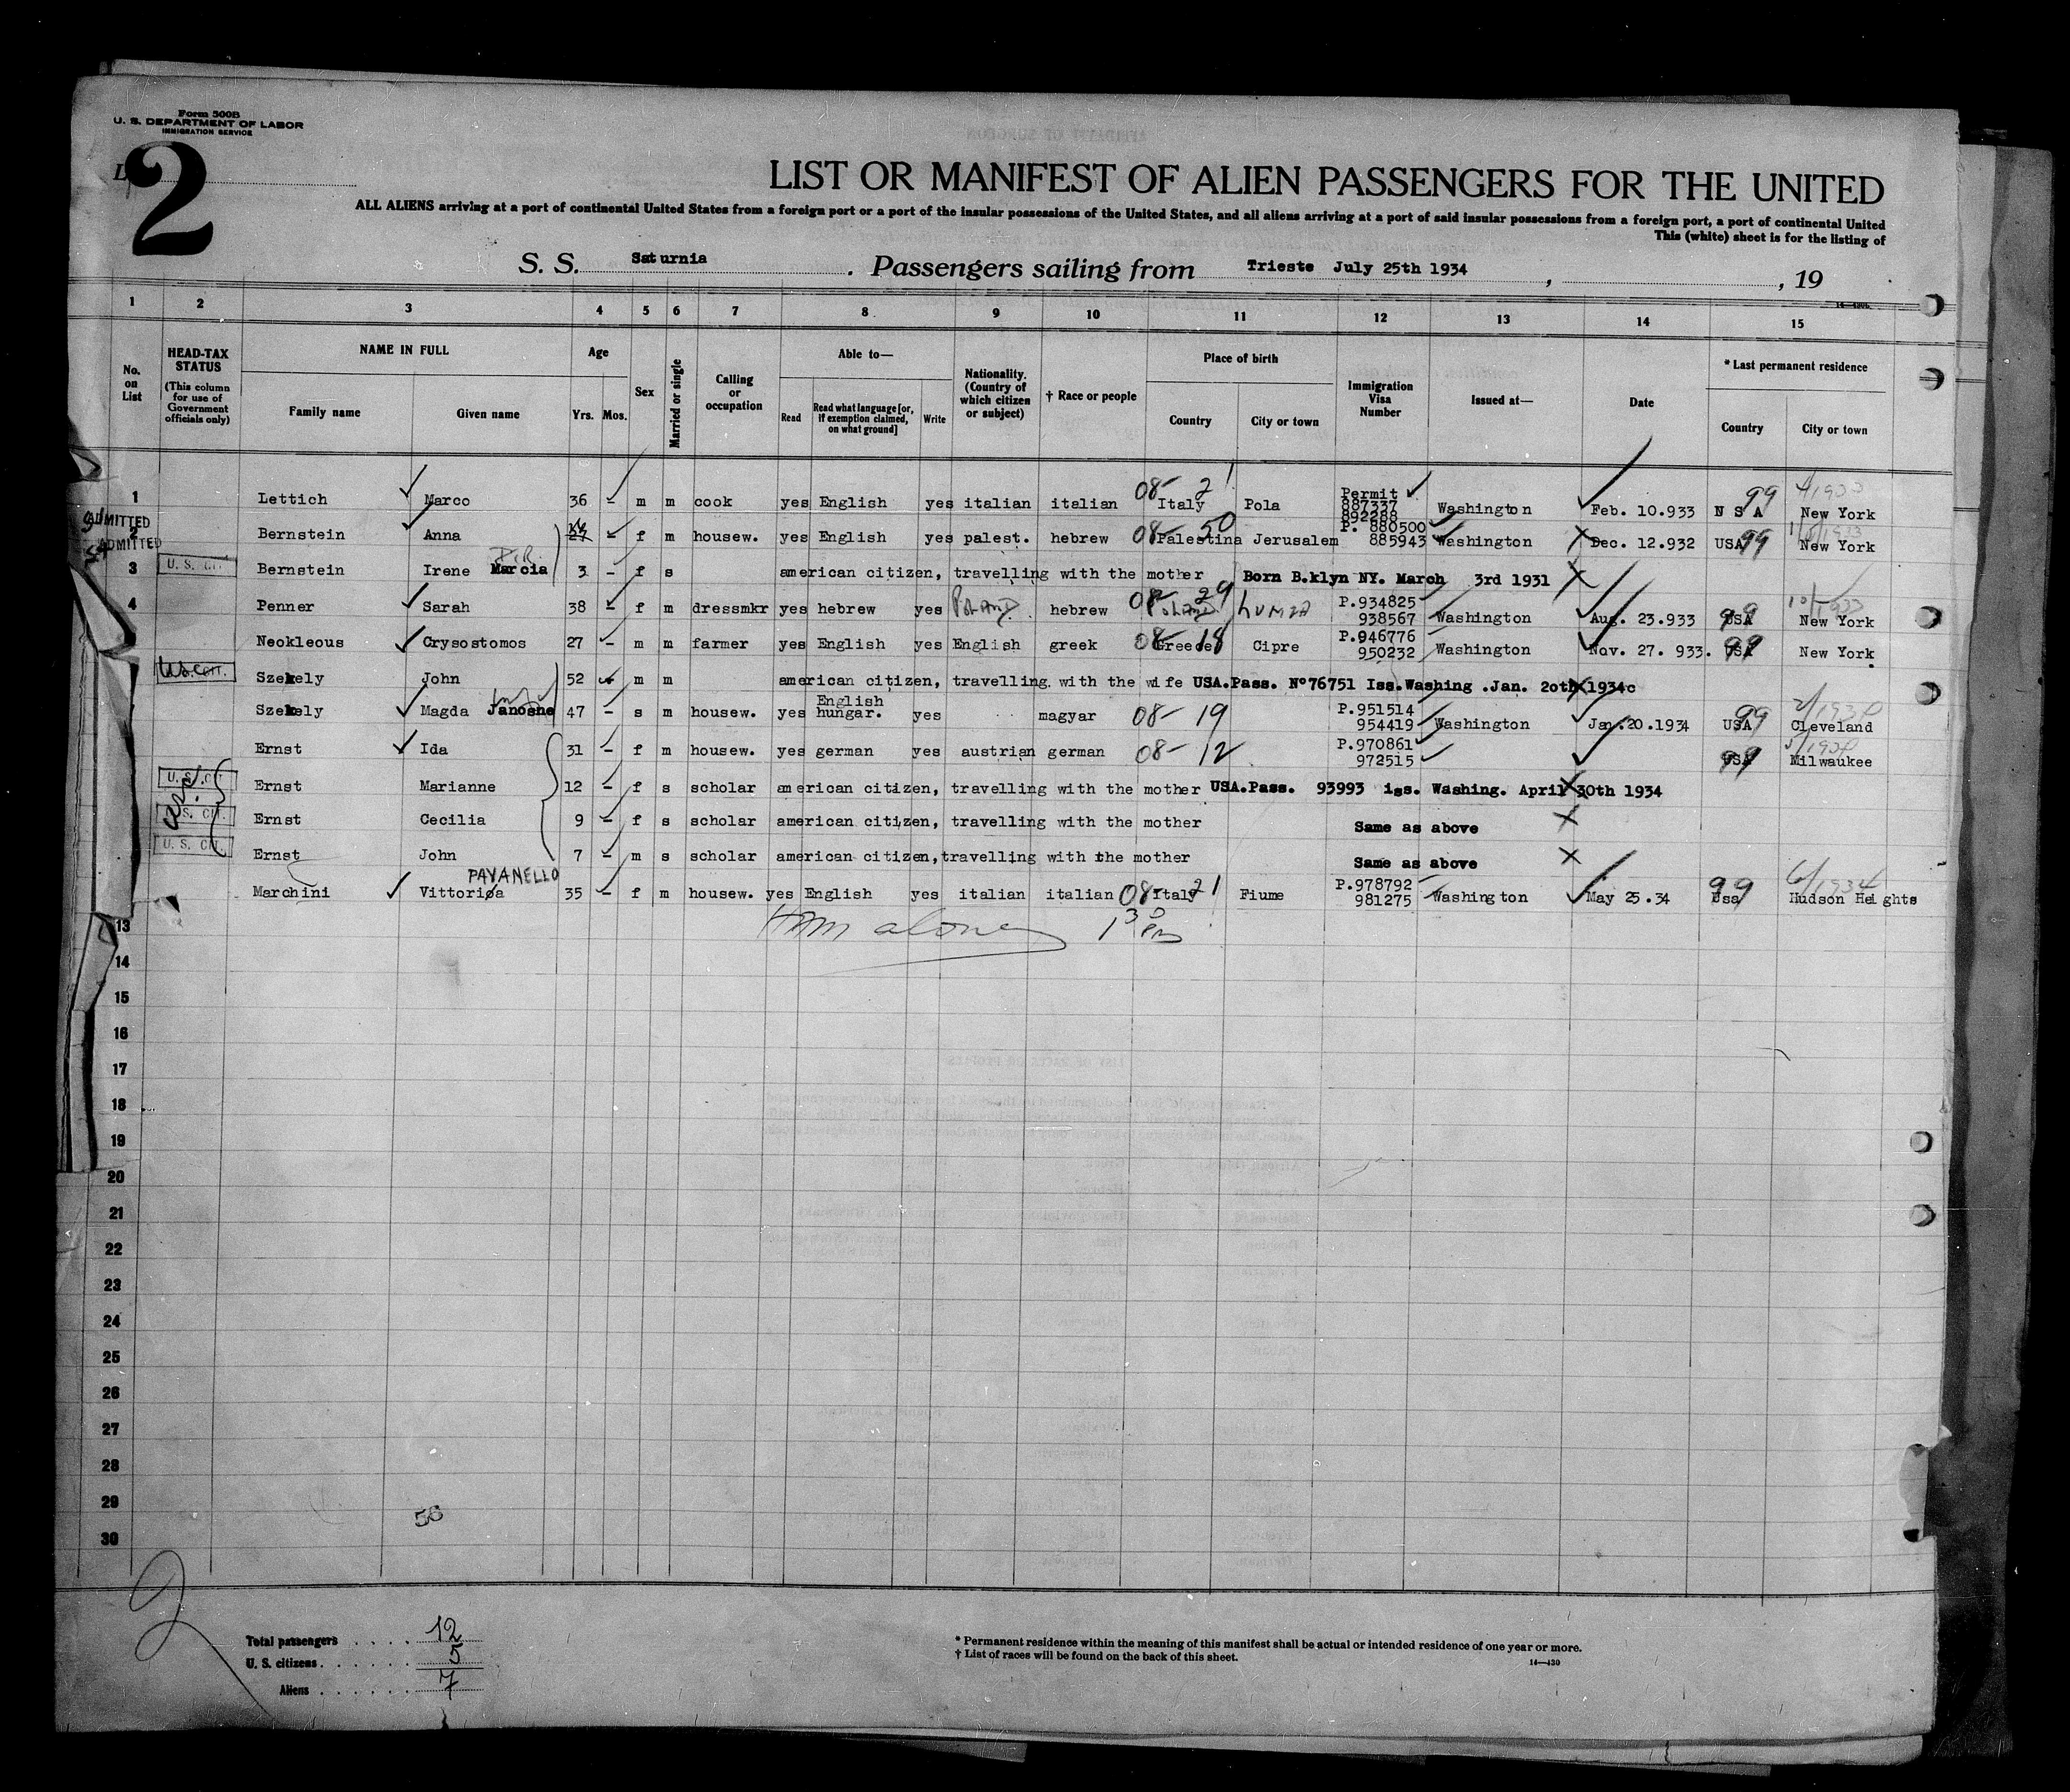 Form 500B
U. S. DEPARTMENT OF LABOR
IMMIGRATION SERVICE
2
LIST OR MANIFEST OF ALIEN PASSENGERS FOR THE UNITED
ALL ALIENS arriving at a port of continental United States from a foreign port or a port of the insular possessions of the United States, and all aliens arriving at a port of said insular possessions from a foreign port, a port of continental United
This (white) sheet is for the listing of
S. S. Saturnia . Passengers sailing from Trieste July 25th 1934 , , 19
1 2 3 4 5 6 7 8 9 10 11 12 13 14 15
No. on List
HEAD-TAX STATUS (This column for use of Government officials only)
NAME IN FULL Family name Given name
Age Yrs. Mos.
Sex
Married or single
Calling or occupation
Able to— Read Read what language [or, if exemption claimed, on what ground] Write
Nationality. (Country of which citizen or subject)
† Race or people
Place of birth Country City or town
Immigration Visa Number
Issued at—
Date
* Last permanent residence Country City or town
1 Lettich Marco 36 - m m cook yes English yes italian italian 08- 21 Italy Pola Permit 887337 892288 Washington Feb. 10.933 N S A 99 New York 4/1933
ADMITTED
2 Bernstein Anna 27 f m housew. yes English yes palest. hebrew 08 50 Palestina Jerusalem P. 880500 885943 Washington Dec. 12.932 USA 99 New York
ADMITTED
3 U. S. CIT. Bernstein Irene Marcia 3 - f s american citizen, travelling with the mother Born B.klyn NY. March 3rd 1931
4 Penner Sarah 38 - f m dressmkr yes hebrew yes POLAND hebrew 08- 29 POLAND LUMZA P.934825 938567 Washington Aug. 23.933 USA 99 New York 10/1933
Neokleous Crysostomos 27 - m m farmer yes English yes English greek 08- 18 Greece Cipre P.946776 950232 Washington Nov. 27. 933. USA 99 New York
U.S. CIT. Szekely John 52 - m m american citizen, travelling with the wife USA.Pass. Nº76751 Iss.Washing .Jan. 2oth 1934c
Szekely Magda Janosne 47 - s m housew. yes English hungar. yes magyar 08- 19 P.951514 954419 Washington Jan.20.1934 USA 99 Cleveland 2/1934
Ernst Ida 31 - f m housew. yes german yes austrian german 08- 12 P.970861 972515 USA 99 Milwaukee
U. S. CIT. Ernst Marianne 12 - f s scholar american citizen, travelling with the mother USA.Pass. 93993 iss. Washing. April 30th 1934
U. S. CIT. Ernst Cecilia 9 - f s scholar american citizen, travelling with the mother Same as above
U. S. CIT. Ernst John 7 - m s scholar american citizen,travelling with the mother Same as above
PAVANELLO
Marchini Vittoriøa 35 - f m housew. yes English yes italian italian 08- 21 Italy Fiume P.978792 981275 Washington May 25.34 Usa 99 Hudson Heights 6/1934
13
14
15
16
17
18
19
20
21
22
23
24
25
26
27
28
29
30
Total passengers . . . . 12
U. S. citizens . . . . . . 5
Aliens . . . . . . 7
* Permanent residence within the meaning of this manifest shall be actual or intended residence of one year or more.
† List of races will be found on the back of this sheet.
14—430